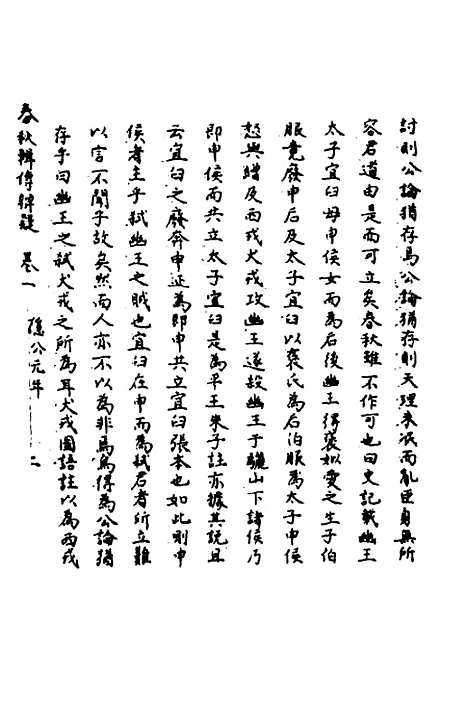 討則公論猶存焉公論猶存則天理未泯而亂臣身無所
容君道由是而可立矣春秋雖不作可也曰史記載幽王
太子宜臼母申侯女而為后後幽王得褒姒愛之生子伯
服竟廢申后及太子宜臼以褒氏為后伯服為太子申侯
怒與繒及西戎犬戎攻幽王遂殺幽王于驪山下諸侯乃
即申侯而共立太子宜臼是為平王朱子註亦據其說且
云宜臼之廢奔申迺為即申共立宜臼張本也如此則申
侯者主乎弒幽王之賊也宜臼在申而為弒君者所立雖
以言不聞乎故矣然而人亦不以為非焉烏得為公論猶
存乎曰幽王之弒犬戎之所為耳犬戎國語註以為西戎
春秋輯傳辨疑 卷一 隱公元年 二